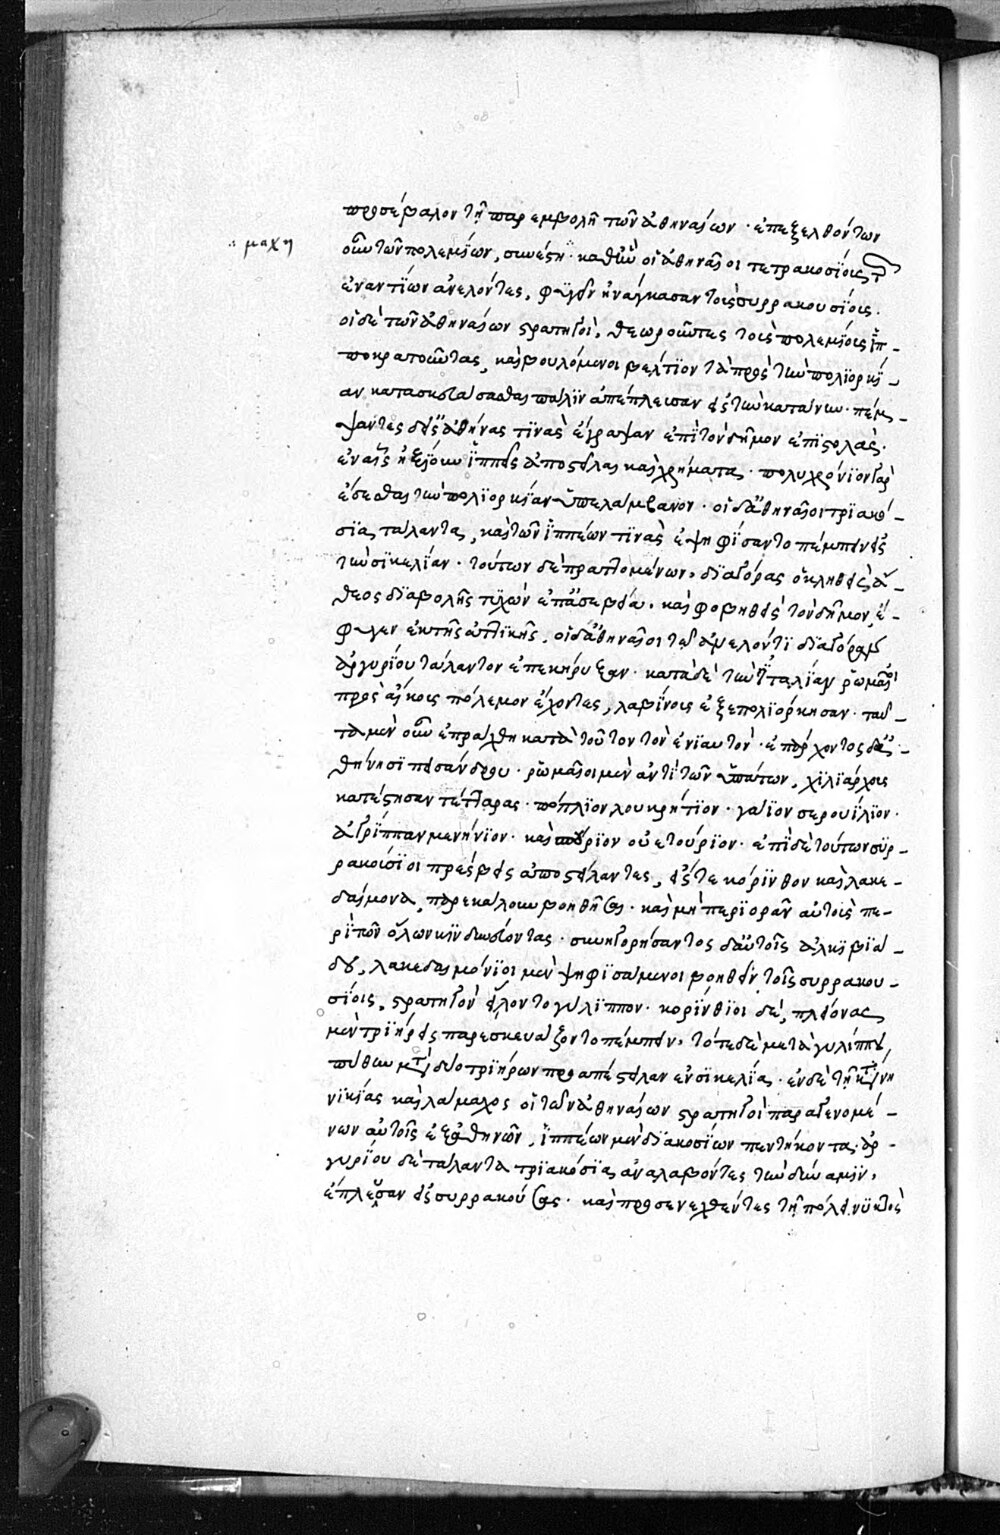 προσέβαλον τῆ παρεμβολῆ τῶν ἀθηναίων · ἐπεξελθόντων
∴ μαχη
οὖν τῶν πολεμίων, συνέστη · καθ' ἣν οἱ ἀθηναῖοι τετρακοσίους τ
ἐναντίων ἀνελόντες, φυγεῖν ἠνάγκασαν τοὺς συρρακουσίους.
οἱ δὲ τῶν ἀθηναίων στρατηγοὶ, θεωροῦντες τοὺς πολεμίους ἱπ-
ποκρατοῦντας, καὶ βουλόμενοι βέλτιον τὰ πρὸς τὴν πολιορκί-
αν κατασκευάσασθαι πάλιν ἀπέπλευσαν εἰς τὴν κατάνην · πέμ-
ψαντες δ' εἰς ἀθήνας τινὰς ἔγραψαν ἐπὶ τὸν δῆμον ἐπιστολὰς.
ἐν αἷς ἠξίουν ἱππεῖς ἀποστεῖλαι καὶ χρήματα · πολυχρόνιον γὰρ
ἔσεσθαι τὴν πολιορκίαν ὑπελάμβανον · οἱ δ' ἀθηναῖοι τριακό-
σια τάλαντα, καὶ τῶν ἱππέων τινὰς ἐψηφίσαντο πέμπειν εἰς
τὴν σικελίαν · τούτων δὲ πραττομένων, διαγόρας ὁ κληθεὶς ἄ-
θεος διαβολῆς τυχὼν ἐπ' ἀσεβεία · καὶ φοβηθεὶς τὸν δῆμον, ἔ-
φυγεν ἐκ τῆς ἀττικῆς, οἱ δ' ἀθηναῖοι τῶ ἀνελόντι διαγόραν
ἀργυρίου τάλαντον ἐπεκήρυξαν · κατὰ δὲ τὴν ἰταλίαν ῥωμαῖοι
πρὸς αἴκους πόλεμον ἔχοντες, λαβίνους ἐξεπολιόρκησαν · ταῦ-
τα μὲν οὖν ἐπράχθη κατὰ τοῦτον τὸν ἐνιαυτόν · ἐπ' ἄρχοντος δ' ἀ-
θήνησι πεισάνδρου · ῥωμαῖοι μὲν ἀντὶ τῶν ὑπάτων, χιλιάρχους
κατέστησαν τέτταρας · πόπλιον λουκρήτιον · γάιον σερουίλιον ·
ἀγρίππαν μενήνιον · καὶ σπούριον οὐετούριον · ἐπὶ δὲ τούτων συρ-
ρακούσιοι πρέσβεις ἀποστείλαντες, εἴς τε κόρινθον καὶ λακε-
δαίμονα, παρεκάλουν βοηθῆσαι · καὶ μὴ περιορᾶν αὐτοὺς πε-
ρὶ τῶν ὅλων κινδυνεύοντας · συνηγορήσαντος δ' αὐτοῖς ἀλκιβιά-
δου, λακεδαιμόνιοι μὲν ψηφισάμενοι βοηθεῖν τοῖς συρρακου-
σίοις, στρατηγὸν εἵλοντο γύλιππον · κορίνθιοι δὲ, πλείονας
μὲν τριήρεις παρεσκευάζοντο πέμπειν, τότε δὲ μετὰ γυλίππου,
πύθην μετὰ δύο τριήρων προαπέστειλαν ἐν σικελία · ἐν δὲ τῆ κατάνη
νικίας καὶ λάμαχος οἱ τῶν ἀθηναίων στρατηγοὶ παραγενομέ-
νων αὐτοῖς ἐξ ἀθηνῶν, ἱππέων μὲν διακοσίων πεντήκοντα · ἀρ-
γυρίου δὲ τάλαντα τριακόσια ἀναλαβόντες τὴν δύναμιν,
ἔπλευσαν εἰς συρρακούσας · καὶ προσενεχθέντες τῆ πόλει νυκτὸς